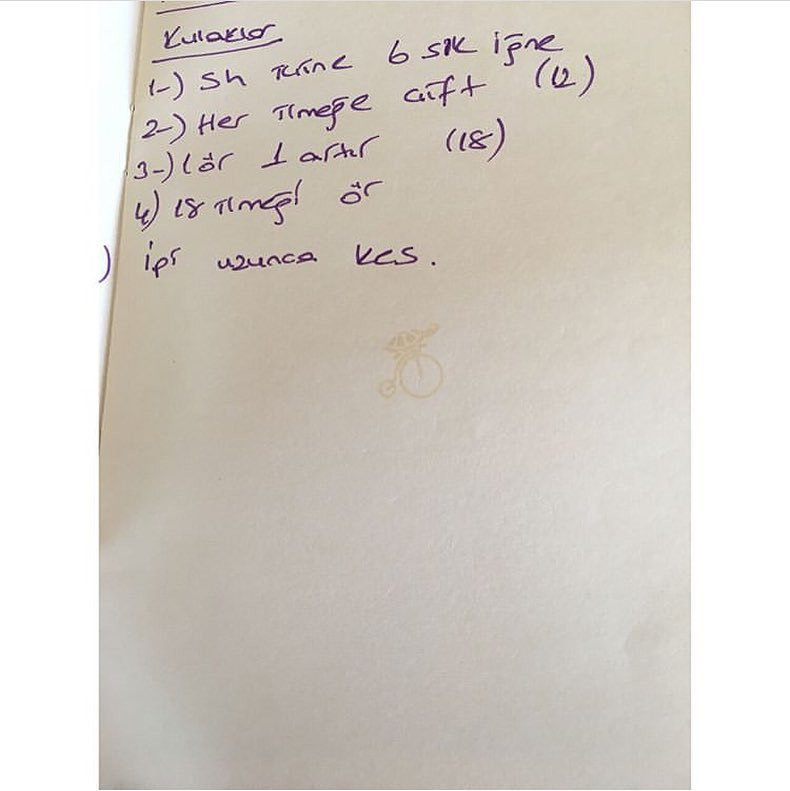 Kulaklar
1-) Sh içine 6 sık iğne
2-) Her ilmeğe çift (12)
3-) 1 ör 1 artır (18)
4) 18 ilmeği ör
) İpi uzunca kes.